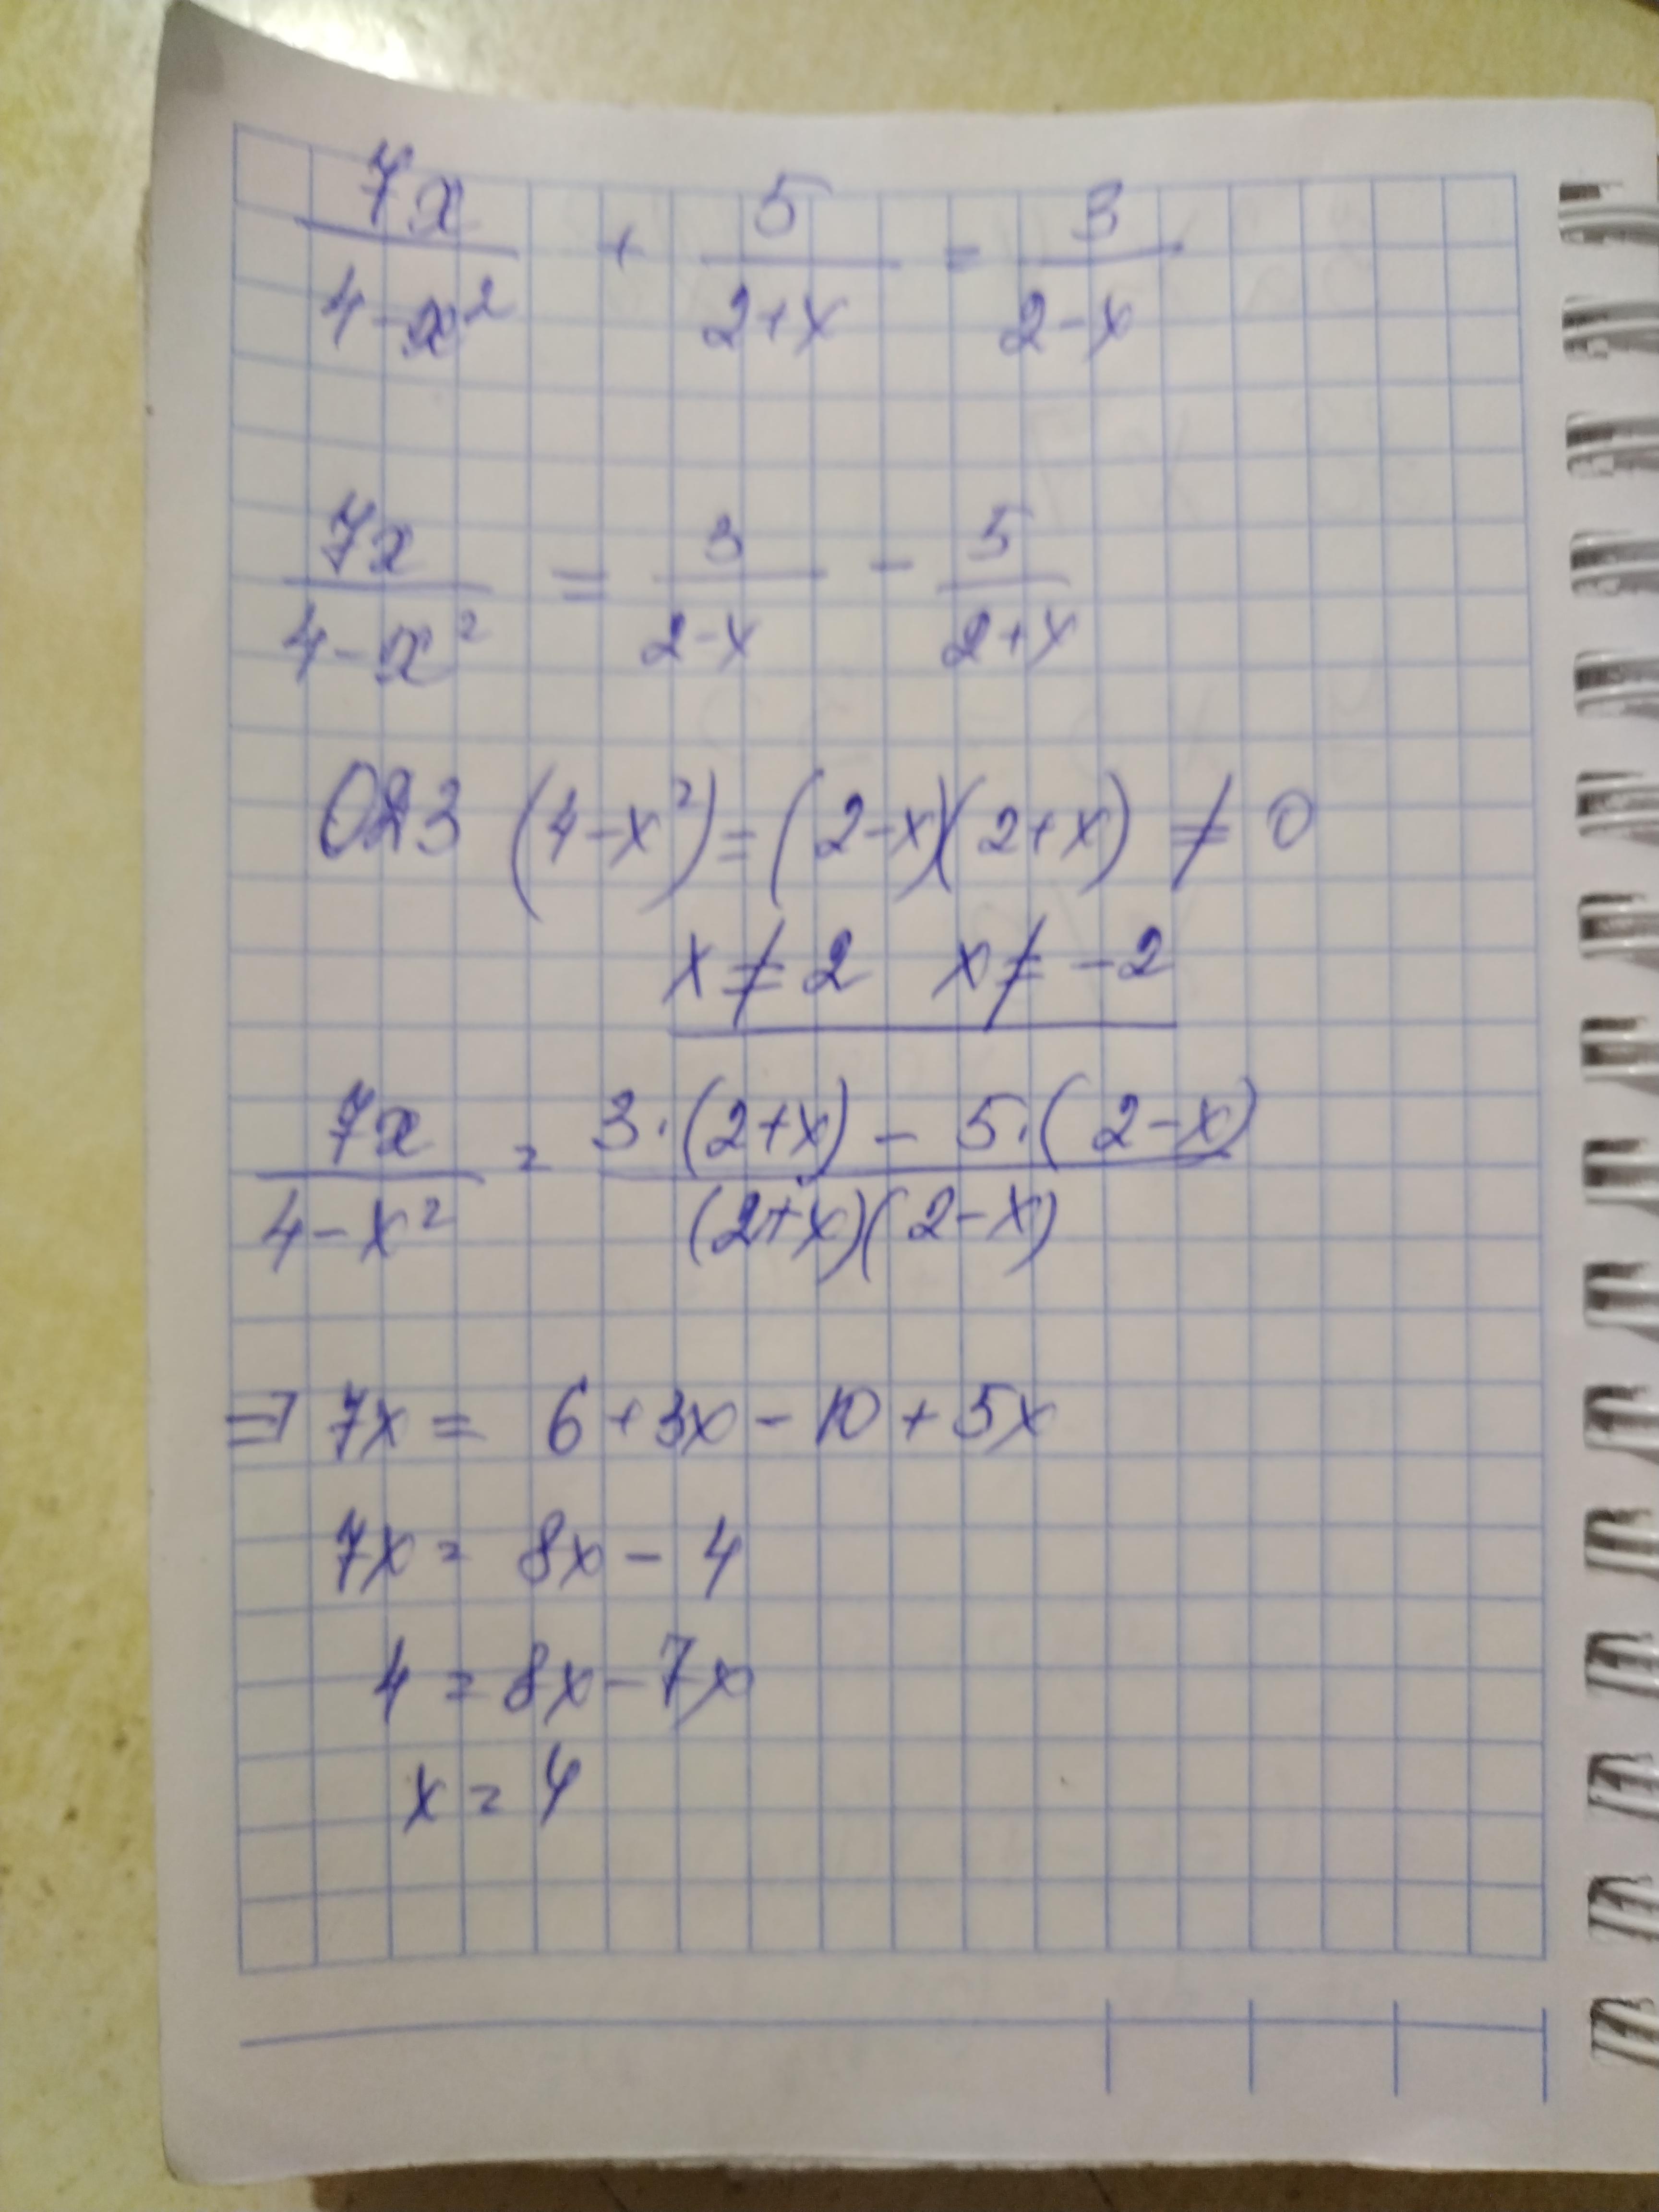 7x/(4-x²) + 5/(2+x) = 3/(2-x)
7x/(4-x²) = 3/(2-x) - 5/(2+x)
ОДЗ (4-x²)=(2-x)(2+x) ≠ 0
x≠2 x≠-2
7x/(4-x²) = (3·(2+x) - 5·(2-x))/((2+x)(2-x))
⇒ 7x = 6+3x-10+5x
7x = 8x-4
4 = 8x-7x
x = 4